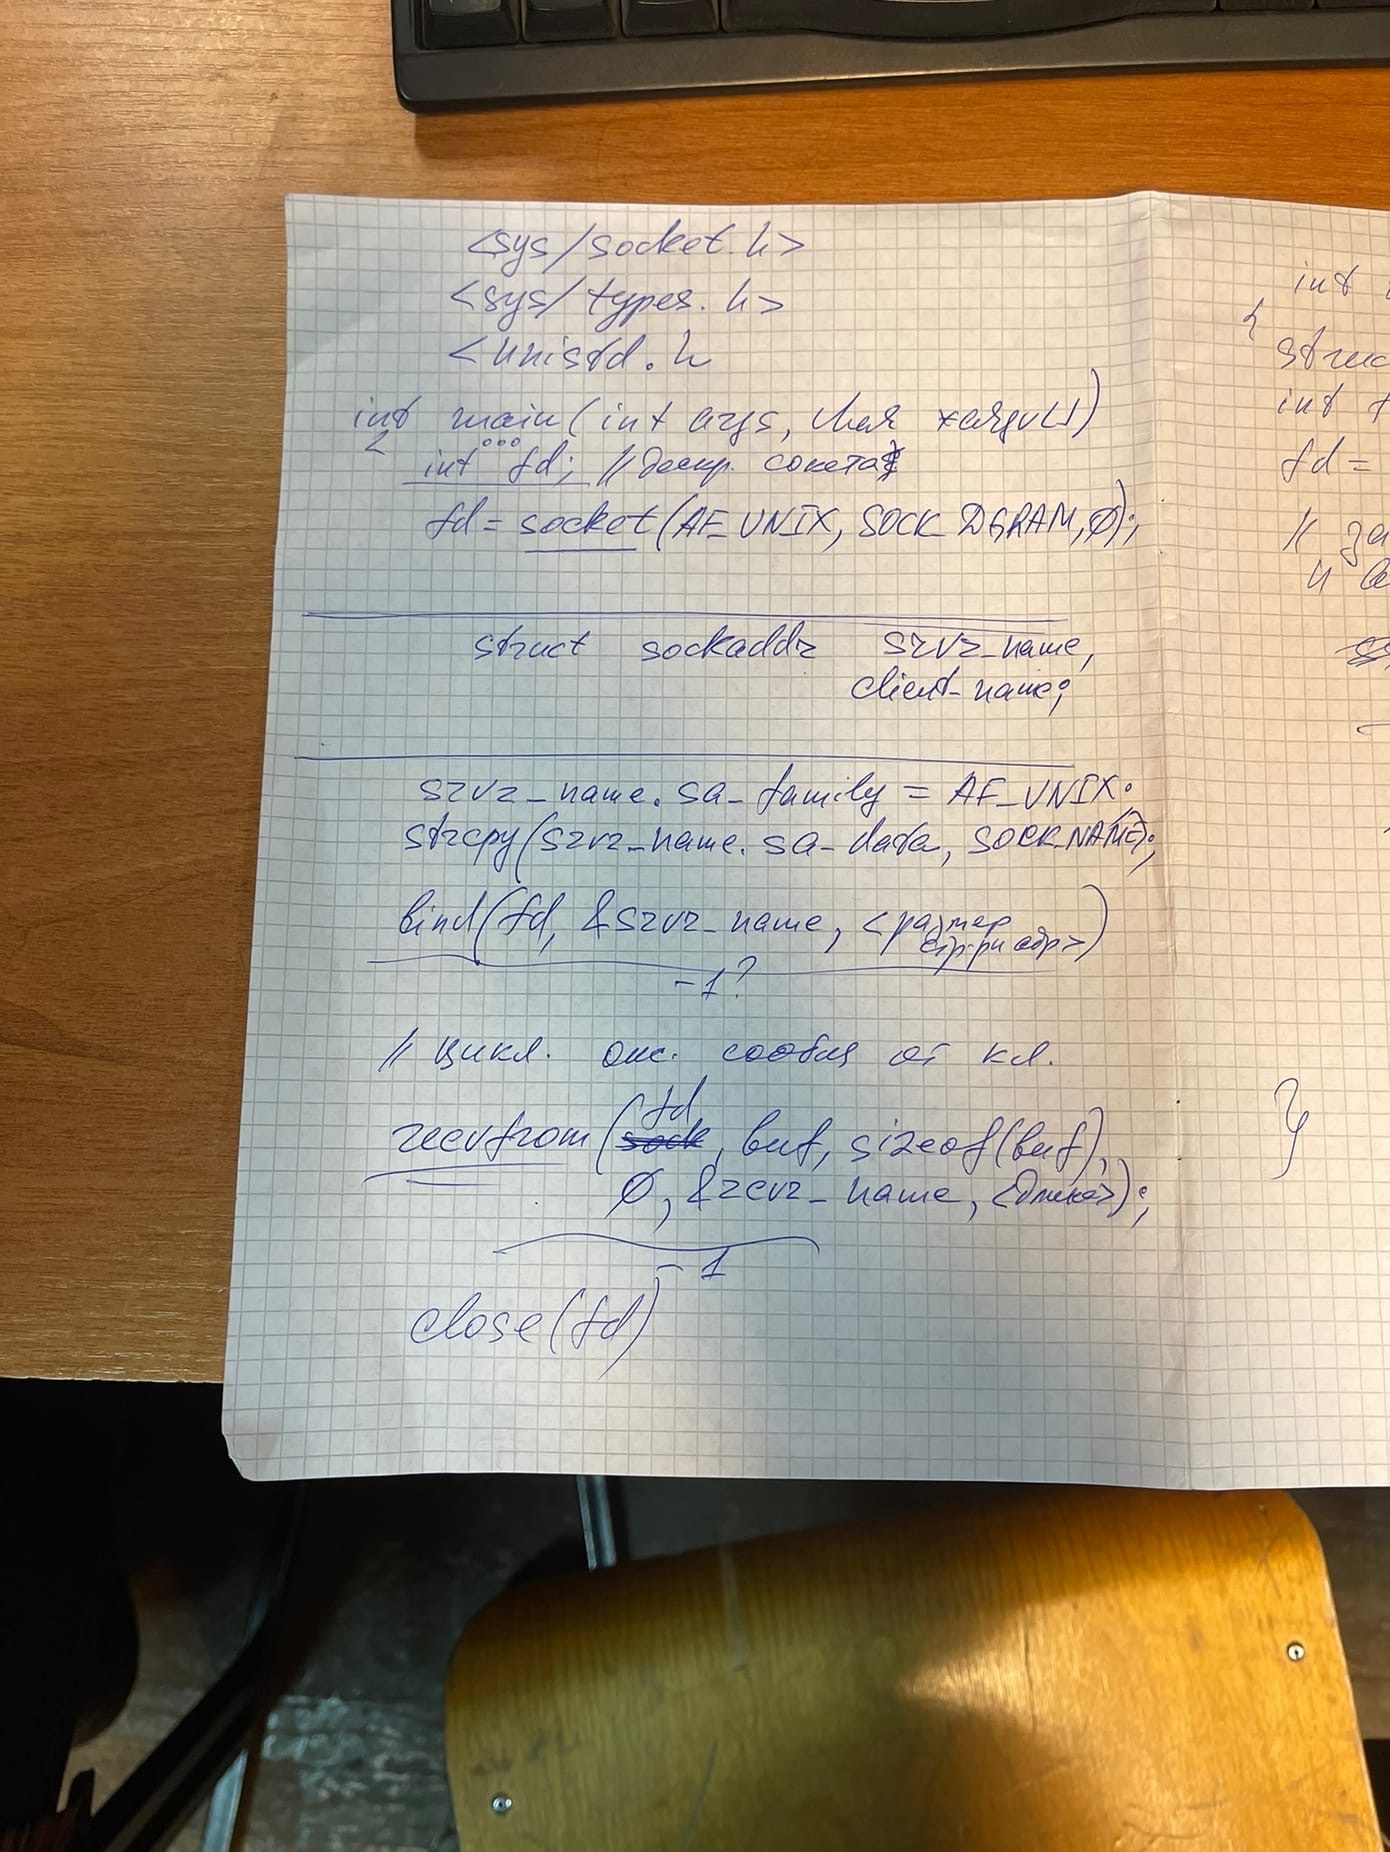 <sys/socket.h>
<sys/types.h>
<unistd.h
int main(int args, char *argv[])
{ ...
int fd; // дескр. сокета
fd = socket(AF_UNIX, SOCK_DGRAM, 0);
struct sockaddr srvr_name,
client_name;
srvr_name.sa_family = AF_UNIX;
strcpy(srvr_name.sa_data, SOCK_NAME);
bind(fd, &srvr_name, <размер
стр-ры адр>)
-1?
// цикл. от кл.
recvfrom(fd, buf, sizeof(buf),
0, &rcvr_name, <длина>);
-1
close(fd)
int
{
struc
int f
fd =
// за
}